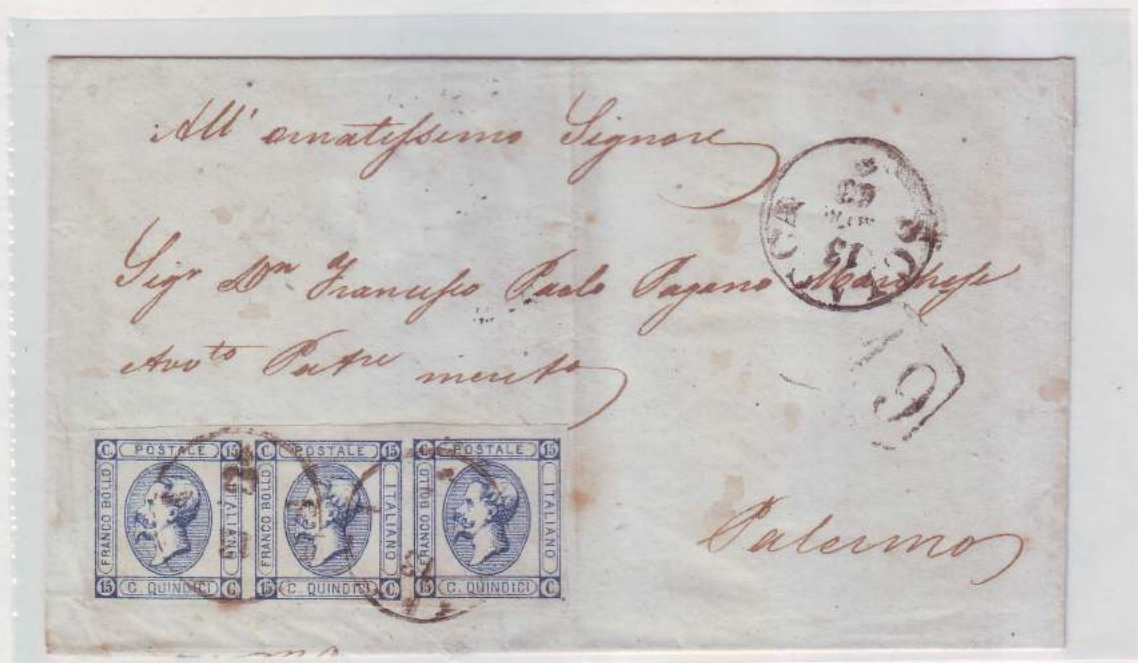 All' ornatissimo Signore
Sigr Dn Francesco Paolo Pagano Marchese
Avvto Patre merito
Palermo
SCIACCA
15
63
C
C. POSTALE 15
FRANCO BOLLO
ITALIANO
15 C. QUINDICI C.
C. POSTALE 15
FRANCO BOLLO
ITALIANO
15 C. QUINDICI C.
C. POSTALE 15
FRANCO BOLLO
ITALIANO
15 C. QUINDICI C.